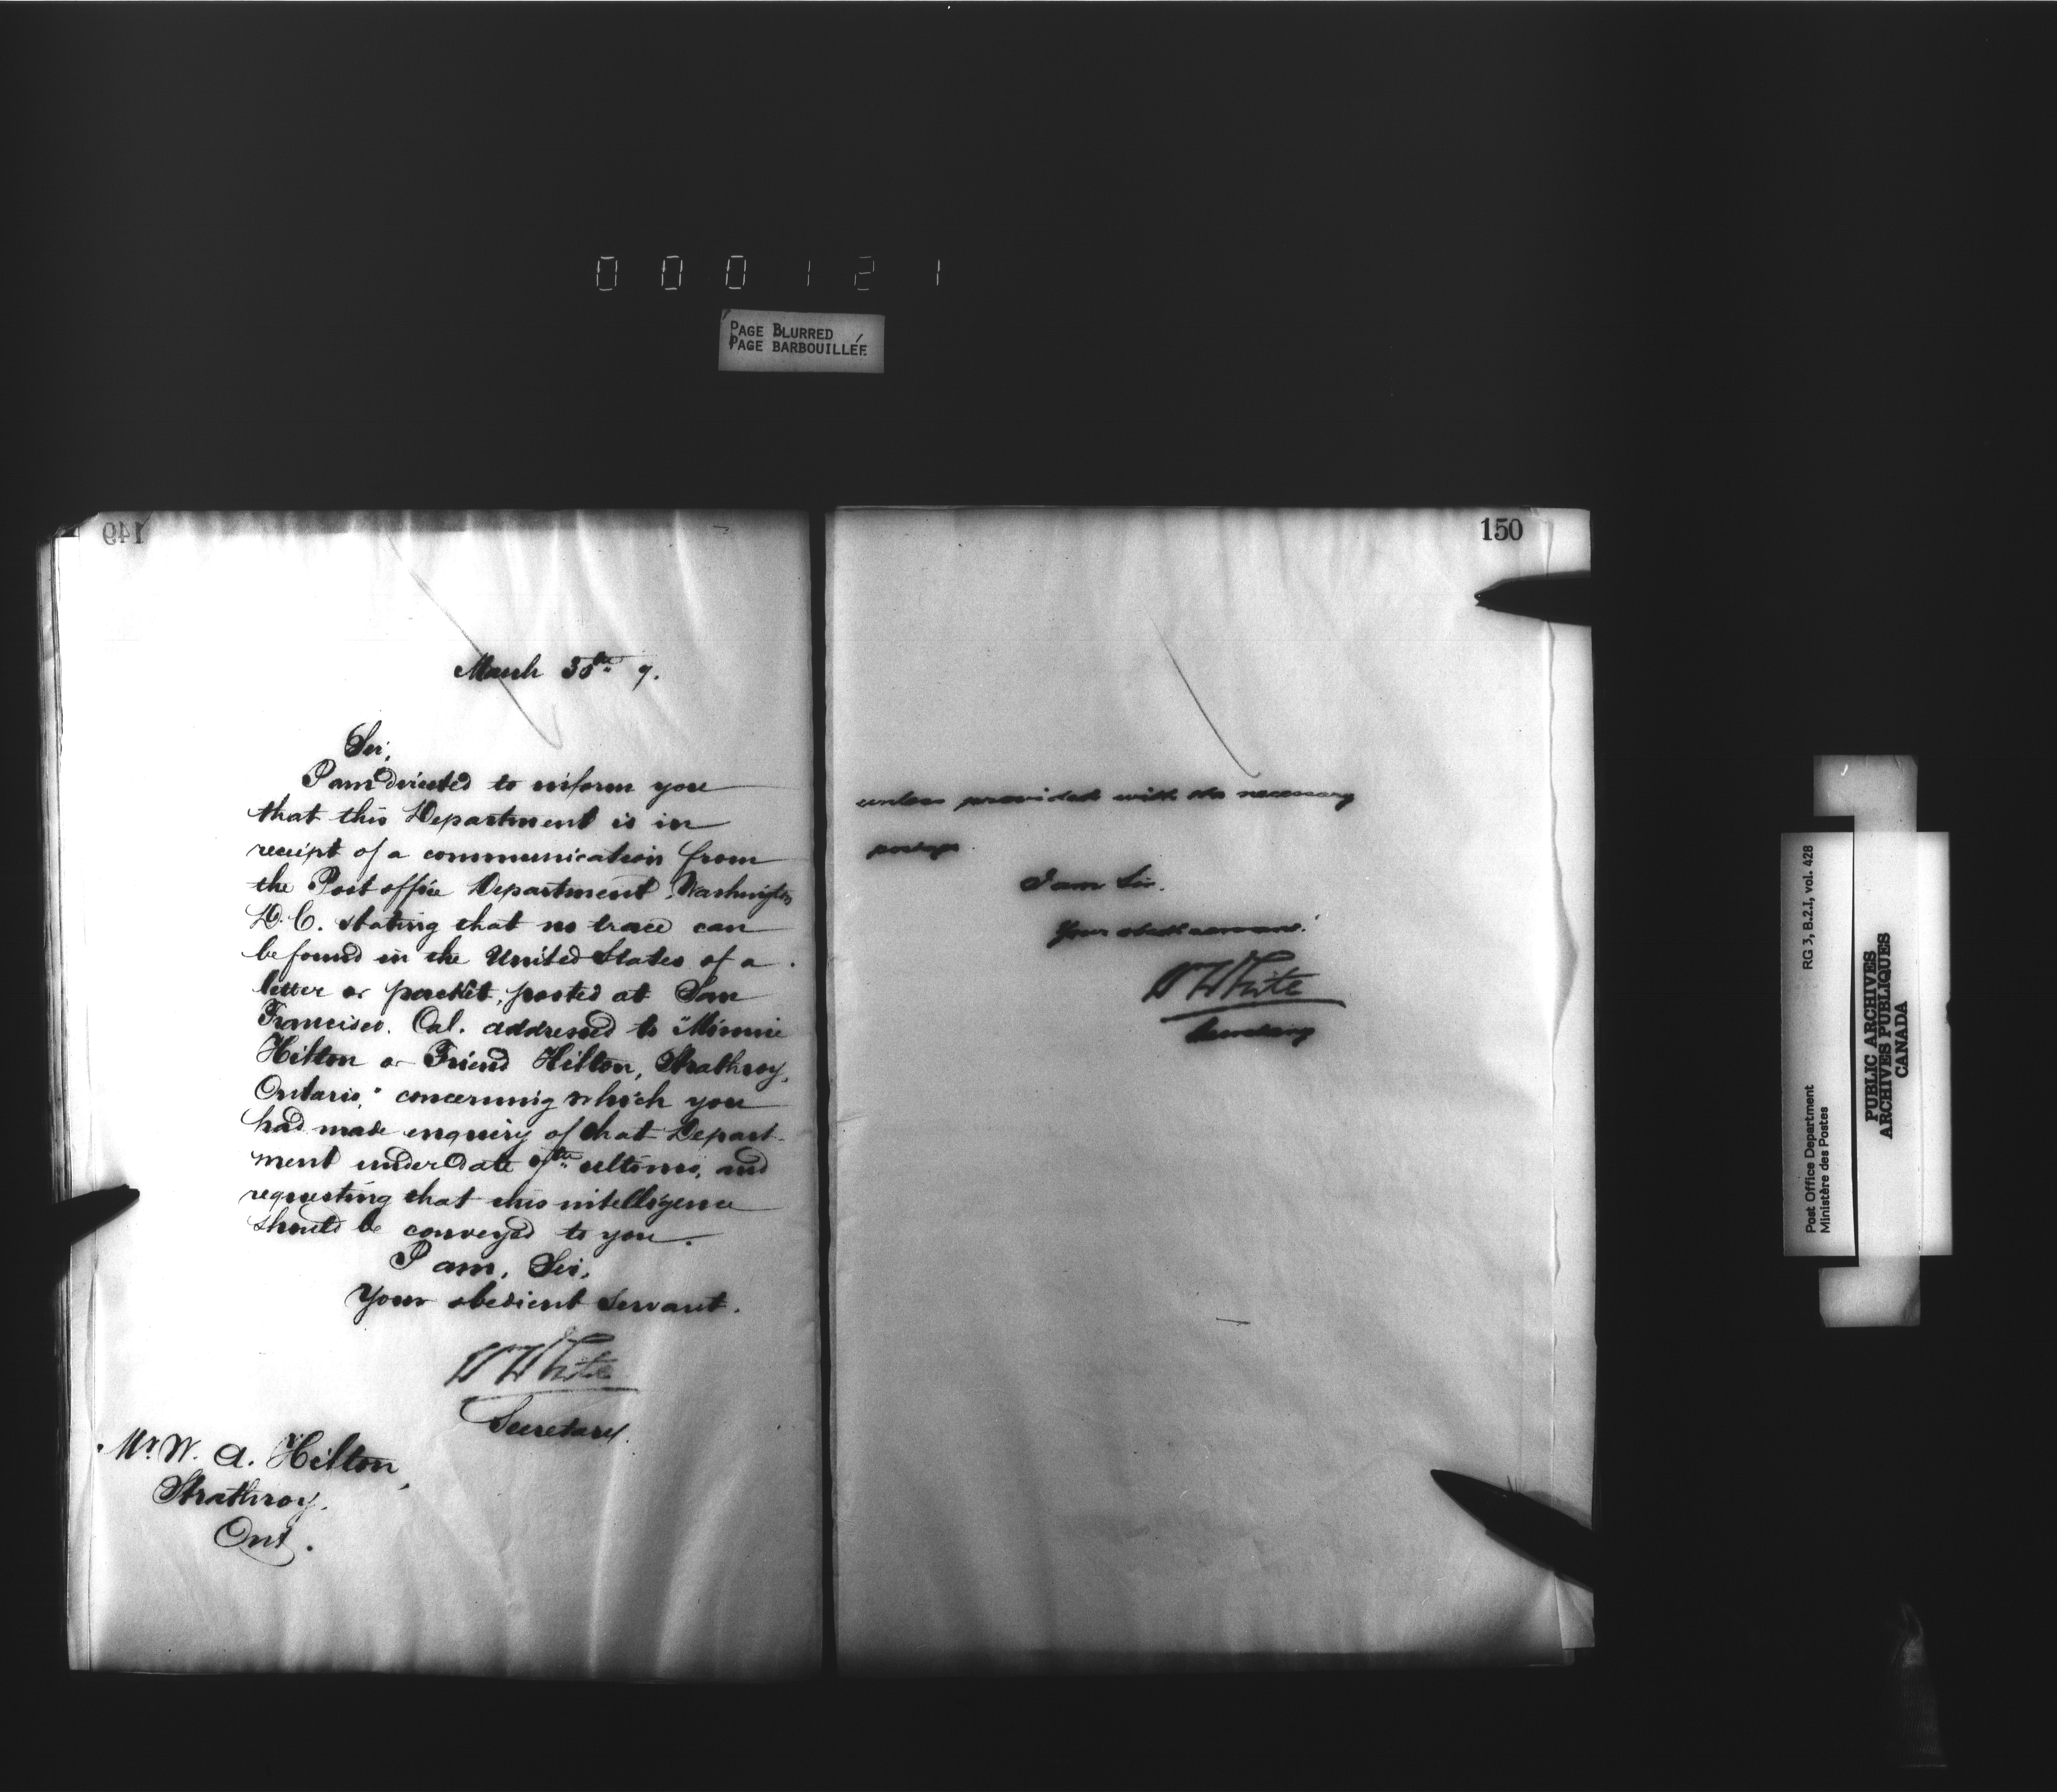 000121
PAGE BLURRED
PAGE BARBOUILLÉE
149
March 30th 7.
Sir,
I am directed to inform you
that this Department is in
receipt of a communication from
the Post office Department, Washington
D.C. stating that no trace can
be found in the United States of a
letter or packet, posted at San
Francisco, Cal. addressed to "Minnie
Hilton or Friend Hilton, Strathroy,
Ontario," concerning which you
had made enquiry of that Depart-
ment under date 9th ultimo, and
requesting that this intelligence
should be conveyed to you.
I am, Sir,
Your obedient Servant.
Wm White
Secretary.
Mr. W. A. Hilton,
Strathroy.
Ont.
150
unless provided with the necessary
postage.
I am Sir.
Your obedt servant.
Wm White
Secretary
Post Office Department
Ministère des Postes
RG 3, B.2.I, vol. 428
PUBLIC ARCHIVES
ARCHIVES PUBLIQUES
CANADA